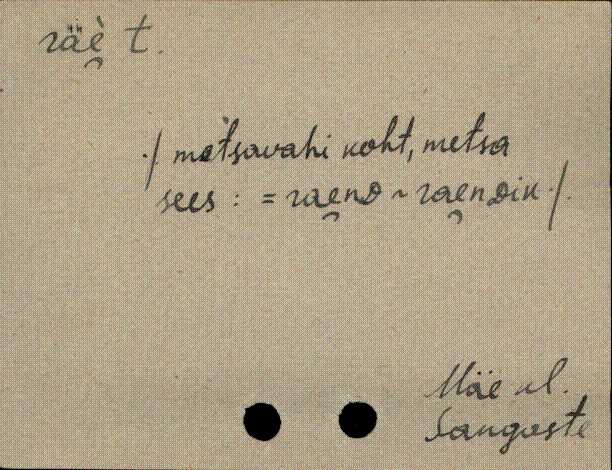 räè̯ t.
./ metsavahi koht, metsa
sees : = rae̯nD ~ rae̯nDik ./.
Mäe ul.
Sangaste